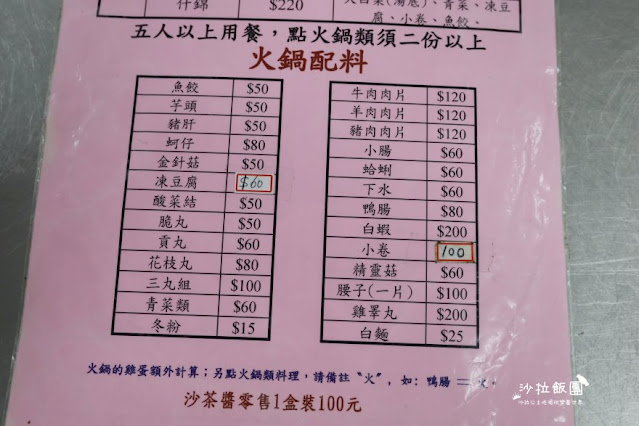 什錦 $220
大白菜(湯底)、青菜、凍豆
腐、小卷、魚餃、
五人以上用餐，點火鍋類須二份以上
火鍋配料
魚餃 $50
芋頭 $50
豬肝 $50
蚵仔 $80
金針菇 $50
凍豆腐 $60
酸菜結 $50
脆丸 $50
貢丸 $60
花枝丸 $80
三丸組 $100
青菜類 $60
冬粉 $15
牛肉肉片 $120
羊肉肉片 $120
豬肉肉片 $120
小腸 $60
蛤蜊 $60
下水 $60
鴨腸 $80
白蝦 $200
小卷 100
精靈菇 $60
腰子(一片) $100
雞睪丸 $200
白麵 $25
火鍋的雞蛋額外計算；另點火鍋類料理，請備註〝火〞，如：鴨腸 二 火。
沙茶醬零售1盒裝100元
沙拉飯團